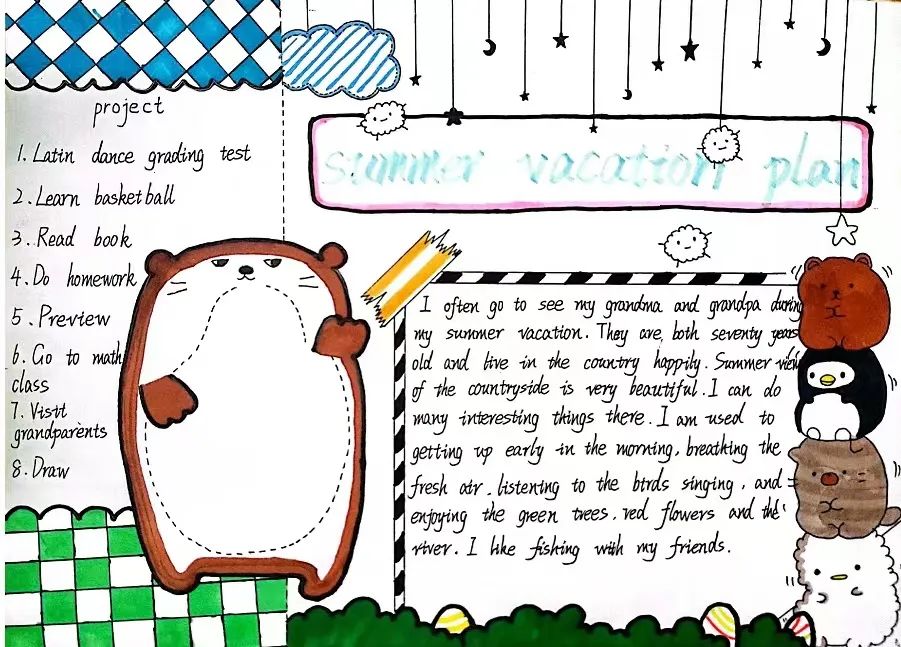 project
1. Latin dance grading test
2. Learn basketball
3. Read book
4. Do homework
5. Preview
6. Go to math
class
7. Visit
grandparents
8. Draw
summer vacation plan
I often go to see my grandma and grandpa during
my summer vacation. They are both seventy years
old and live in the country happily. Summer view
of the countryside is very beautiful. I can do
many interesting things there. I am used to
getting up early in the morning, breathing the
fresh air, listening to the birds singing, and
enjoying the green trees, red flowers and the
river. I like fishing with my friends.